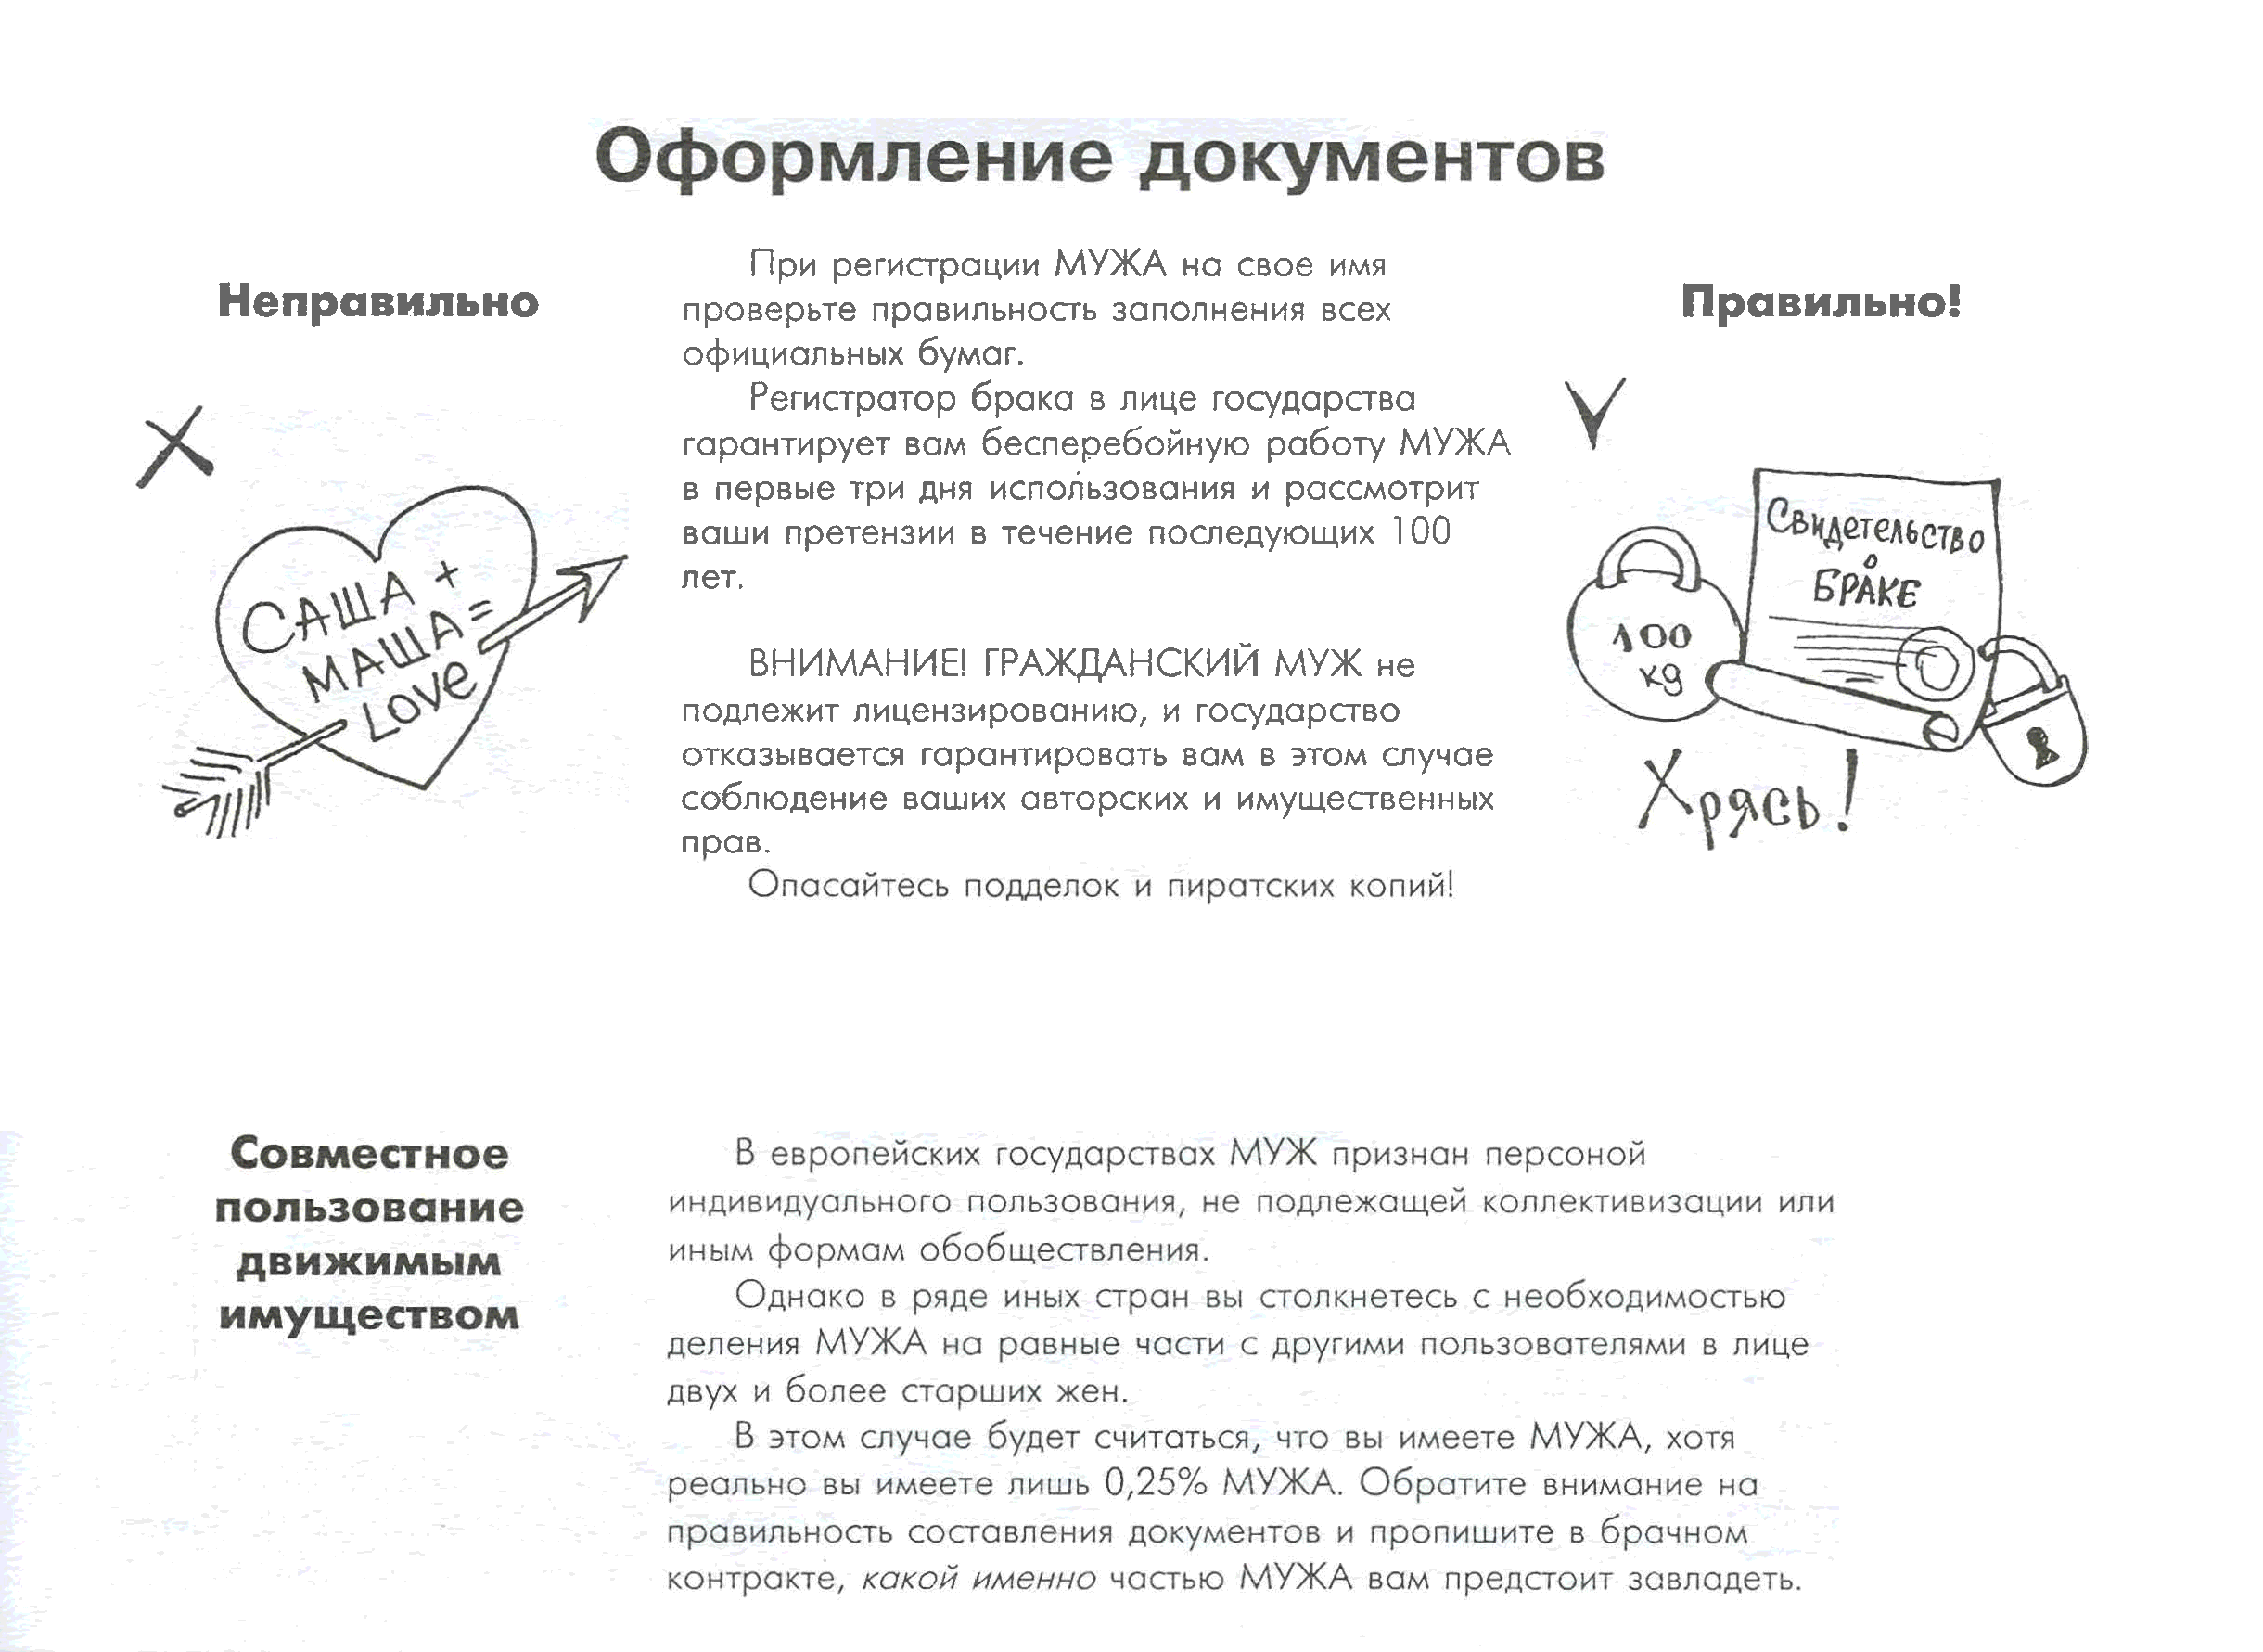 Оформление документов
Неправильно
САША +
МАША =
Love
При регистрации МУЖА на свое имя
проверьте правильность заполнения всех
официальных бумаг.
Регистратор брака в лице государства
гарантирует вам бесперебойную работу МУЖА
в первые три дня использования и рассмотрит
ваши претензии в течение последующих 100
лет.
ВНИМАНИЕ! ГРАЖДАНСКИЙ МУЖ не
подлежит лицензированию, и государство
отказывается гарантировать вам в этом случае
соблюдение ваших авторских и имущественных
прав.
Опасайтесь подделок и пиратских копий!
Правильно!
Свидетельство
о
БРАКЕ
100
кg
Хрясь!
Совместное
пользование
движимым
имуществом
В европейских государствах МУЖ признан персоной
индивидуального пользования, не подлежащей коллективизации или
иным формам обобществления.
Однако в ряде иных стран вы столкнетесь с необходимостью
деления МУЖА на равные части с другими пользователями в лице
двух и более старших жен.
В этом случае будет считаться, что вы имеете МУЖА, хотя
реально вы имеете лишь 0,25% МУЖА. Обратите внимание на
правильность составления документов и пропишите в брачном
контракте, какой именно частью МУЖА вам предстоит завладеть.